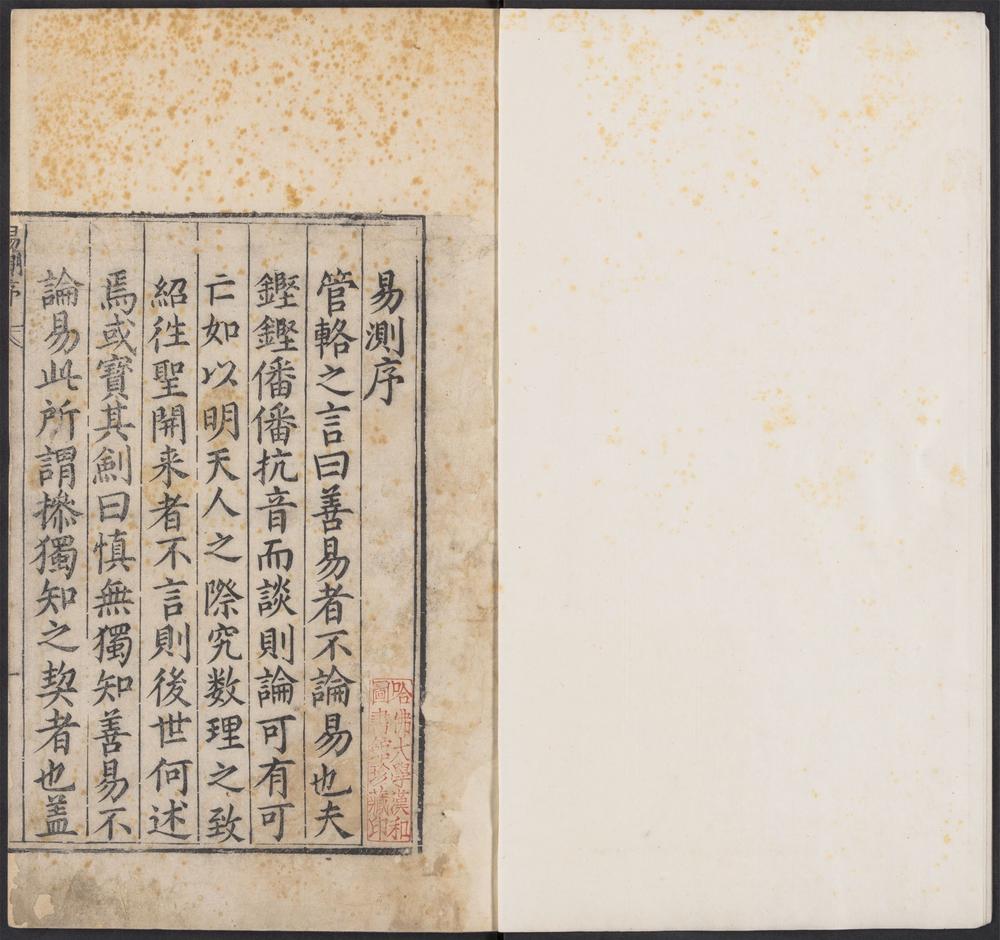 易測序
管輅之言曰善易者不論易也夫
鏗鏗僠僠抗音而談則論可有可
亡如以明天人之際究数理之致
紹徃聖開来者不言則後世何述
焉或寶其劍曰慎無獨知善易不
論易此所謂摻獨知之契者也盖
易測序
一
哈佛大學漢和
圖書館珍藏印